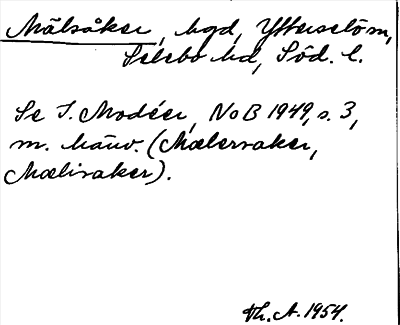 Målsåker, hgd, Ytterselö sn,
Selebo hd, Söd. l.
Se I. Modéer, NoB 1949, s. 3,
m. hänv. (Mælersaker,
Mælirsaker).
Th. A. 1954.